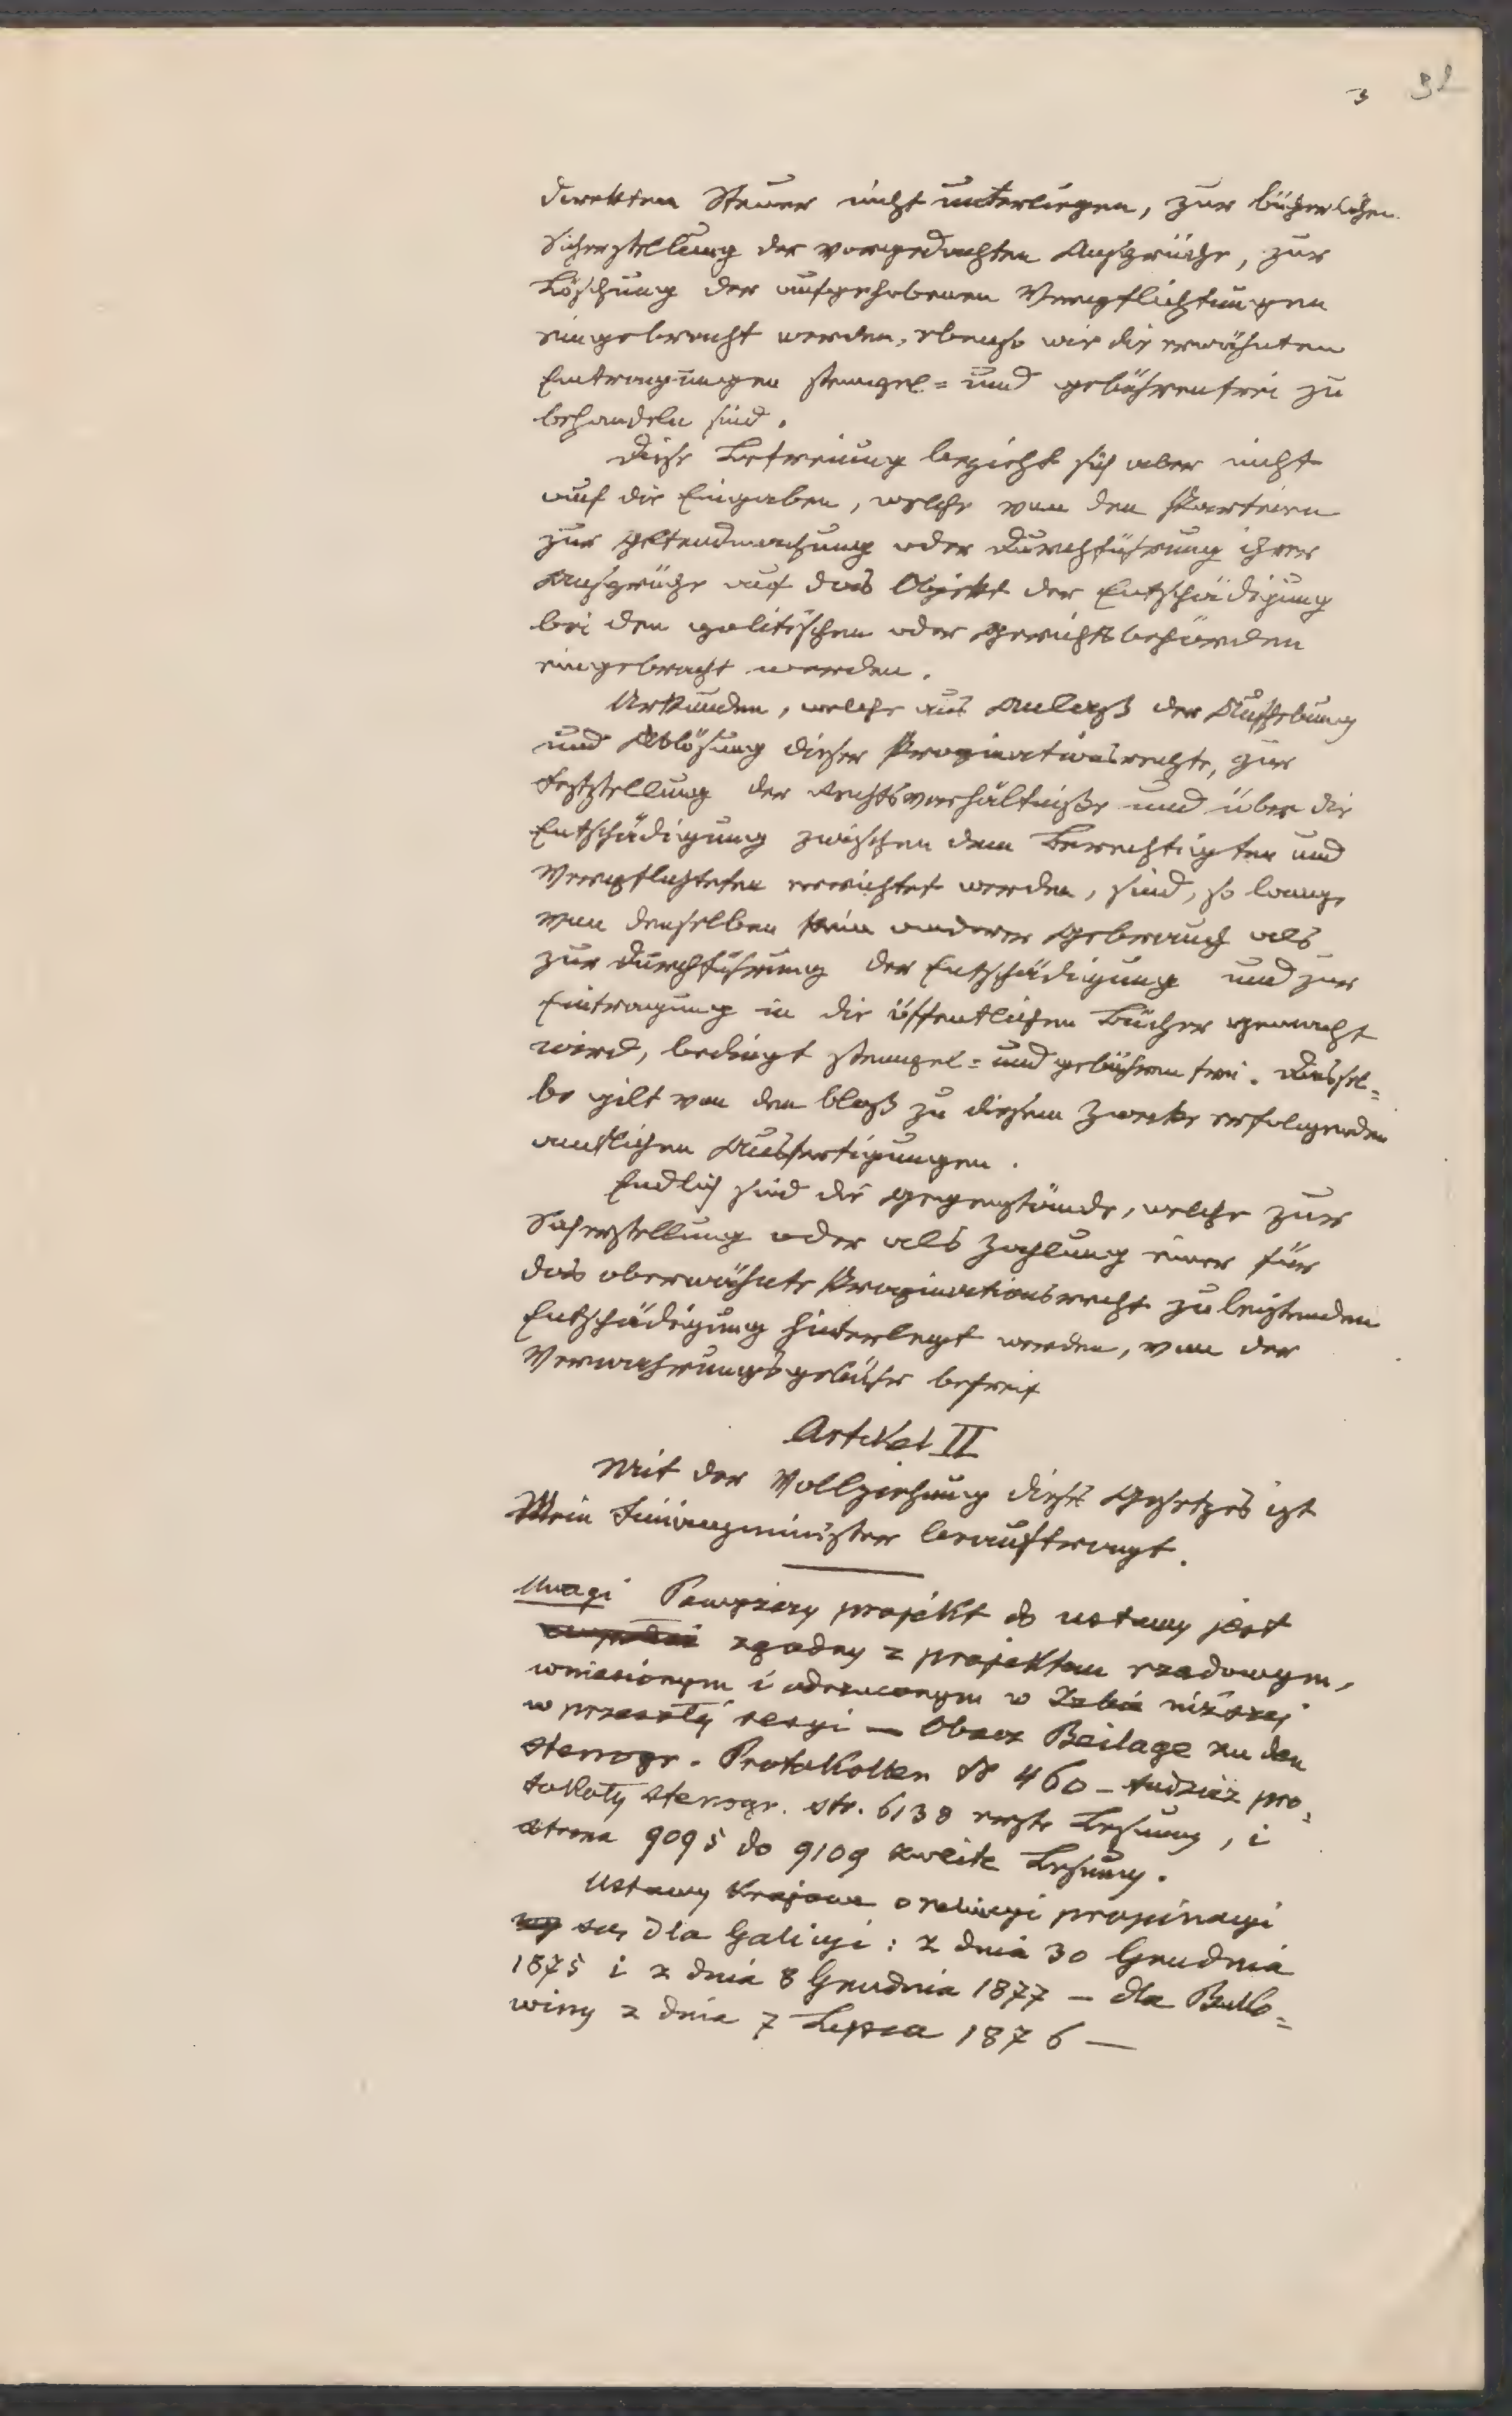 3 32
direkten Steuer nicht unterliegen, zur bücherlichen
Sicherstellung der vorgedachten Ansprüche, zur
Löschung der aufgehobenen Verpflichtungen
eingebracht werden, ebenso wie die erwähnten
Eintragungen stempel= und gebührenfrei zu
behandeln sind.
Diese Befreiung bezieht sich aber nicht
auf die Eingaben, welche von den Parteien
zur Geltendmachung oder Durchführung ihrer
Ansprüche auf das Objekt der Entschädigung
bei den politischen oder Gerichtsbehörden
eingebracht werden.
Urkunden, welche aus Anlaß der Aufhebung
und Ablösung dieser Propinationsrechte, zur
Feststellung der Rechtsverhältniße und über die
Entschädigung zwischen dem Berechtigten und
Verpflichteten errichtet werden, sind, so lange
von denselben kein anderer Gebrauch als
zur Durchführung der Entschädigung und zur
Eintragung in die öffentlichen Bücher gemacht
wird, bedingt stempel= und gebührenfrei. Dassel=
be gilt von den bloß zu diesem Zwecke erfolgenden
amtlichen Ausfertigungen.
Endlich sind die Gegenstände, welche zur
Sicherstellung oder als Zahlung einer für
das oberwähnte Propinationsrecht zu leistenden
Entschädigung hinterlegt werden, von der
Verwahrungsgebühr befreit
Artikel II
Mit der Vollziehung dieses Gesetzes ist
Mein Finanzminister beauftragt.
Uwagi Powyższy projekt do ustawy jest
zgodny z projektem rządowym,
wniesionym i odrzuconym w Izbie niższej
w przeszłej sesyi — Obacz Beilage zu den
stenogr. Protokollen № 460 – tudzież pro=
tokoły stenogr. str. 6138 erste Lesung, i
strona 9095 do 9109 zweite Lesung.
Ustawy krajowe o propinacyi
są dla Galicyi: z dnia 30 Grudnia
1875 i z dnia 8 Grudnia 1877 — dla Buko=
winy z dnia 7 Lipca 1876 —